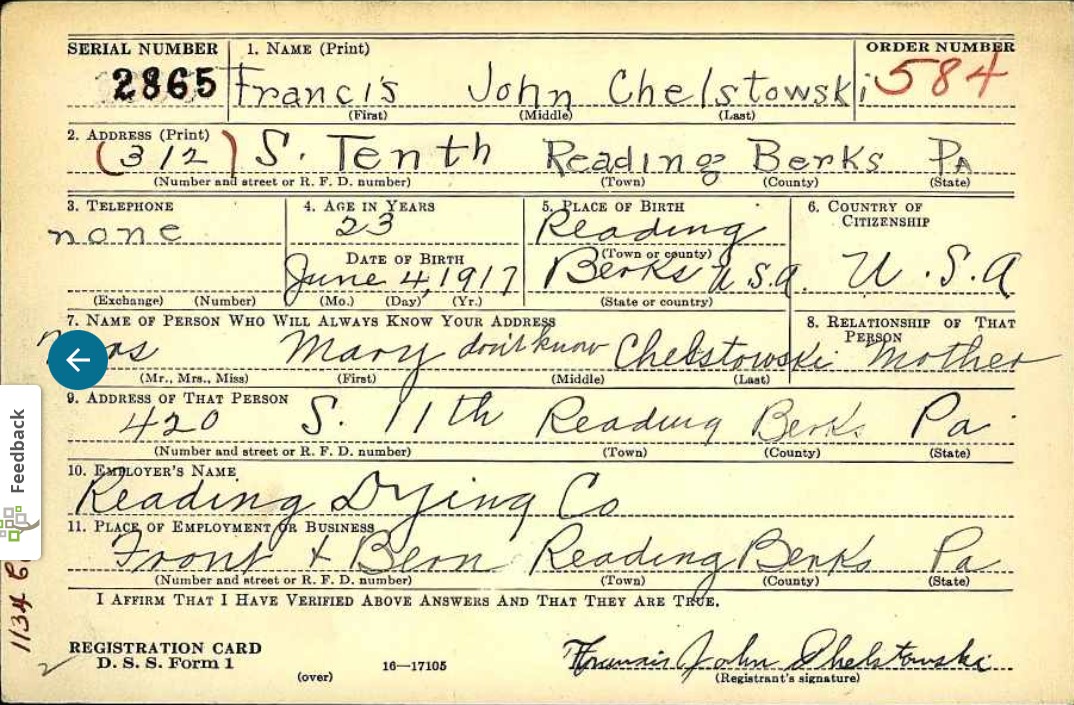 SERIAL NUMBER 1. NAME (Print) ORDER NUMBER
2865 Francis John Chelstowski 584
(First) (Middle) (Last)
2. ADDRESS (Print)
(312) S. Tenth Reading Berks PA
(Number and street or R. F. D. number) (Town) (County) (State)
3. TELEPHONE 4. AGE IN YEARS 5. PLACE OF BIRTH 6. COUNTRY OF CITIZENSHIP
none 23 Reading
DATE OF BIRTH (Town or county)
June 4, 1917 Berks U.S.A. U.S.A
(Exchange) (Number) (Mo.) (Day) (Yr.) (State or country)
7. NAME OF PERSON WHO WILL ALWAYS KNOW YOUR ADDRESS 8. RELATIONSHIP OF THAT PERSON
Mary don't know Chelstowski Mother
(Mr., Mrs., Miss) (First) (Middle) (Last)
9. ADDRESS OF THAT PERSON
420 S. 11th Reading Berks Pa
(Number and street or R. F. D. number) (Town) (County) (State)
10. EMPLOYER'S NAME
Reading Dying Co
11. PLACE OF EMPLOYMENT OR BUSINESS
Front + Bern Reading Berks Pa
(Number and street or R. F. D. number) (Town) (County) (State)
I AFFIRM THAT I HAVE VERIFIED ABOVE ANSWERS AND THAT THEY ARE TRUE.
REGISTRATION CARD
D. S. S. Form 1 16—17105 Francis John Chelstowski
(over) (Registrant's signature)
Feedback